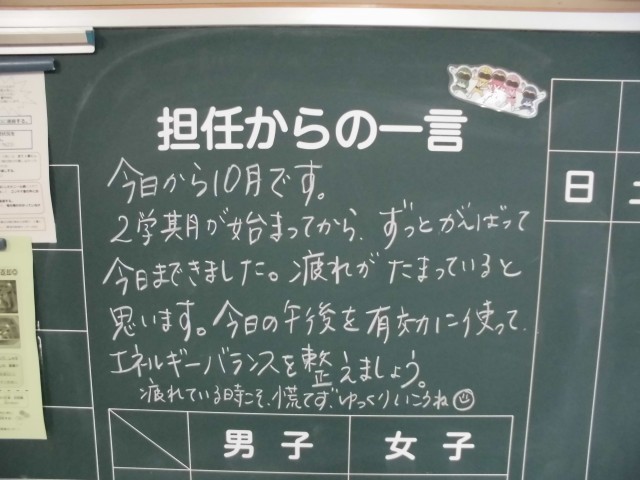 担任からの一言
今日から10月です。
2学期が始まってから、ずっとがんばって
今日まできました。疲れがたまっていると
思います。今日の午後を有効に使って、
エネルギーバランスを整えましょう。
疲れている時こそ、慌てず、ゆっくりいこうね
日
土
男子
女子